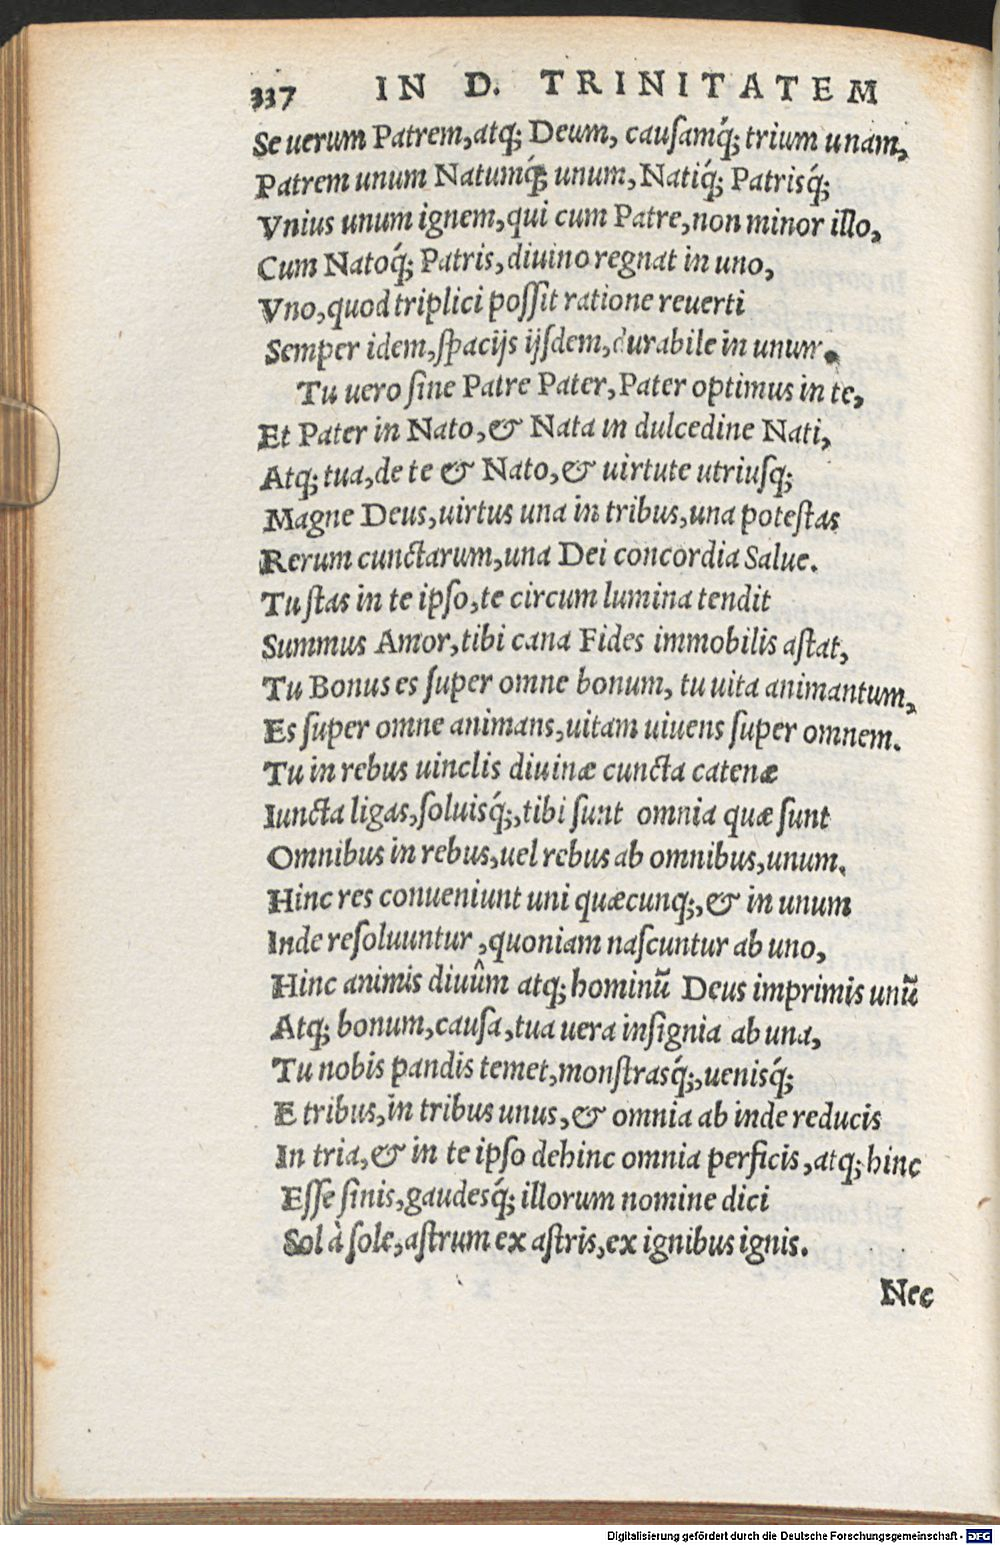 337 IN D. TRINITATEM
Se uerum Patrem, atq; Deum, causamq́; trium unam,
Patrem unum Natumq́; unum, Natiq́; Patrisq́;
Vnius unum ignem, qui cum Patre, non minor illo,
Cum Natoq́; Patris, diuino regnat in uno,
Vno, quod triplici possit ratione reuerti
Semper idem, spacijs ijsdem, durabile in unum.
Tu uero sine Patre Pater, Pater optimus in te,
Et Pater in Nato, & Nata in dulcedine Nati,
Atq; tua, de te & Nato, & uirtute utriusq;
Magne Deus, uirtus una in tribus, una potestas
Rerum cunctarum, una Dei concordia Salue.
Tu stas in te ipso, te circum lumina tendit
Summus Amor, tibi cana Fides immobilis astat,
Tu Bonus es super omne bonum, tu uita animantum,
Es super omne animans, uitam uiuens super omnem.
Tu in rebus uinclis diuinæ cuncta catenæ
Iuncta ligas, soluisq́;, tibi sunt omnia quæ sunt
Omnibus in rebus, uel rebus ab omnibus, unum.
Hinc res conueniunt uni quæcunq;, & in unum
Inde resoluuntur, quoniam nascuntur ab uno,
Hinc animis diuûm atq; hominũ Deus imprimis unũ
Atq; bonum, causa, tua uera insignia ab una,
Tu nobis pandis temet, monstrasq́;, uenisq́;
E tribus, in tribus unus, & omnia ab inde reducis
In tria, & in te ipso dehinc omnia perficis, atq; hinc
Esse sinis, gaudesq́; illorum nomine dici
Sol à sole, astrum ex astris, ex ignibus ignis.
Nec
Digitalisierung gefördert durch die Deutsche Forschungsgemeinschaft - DFG